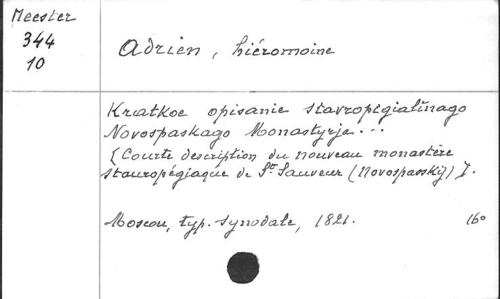 Meester
344
10
Adrien, hiéromoine
Kratkoe opisanie stavropigialínago
Novospaskago Monastyrja...
{Courte description du nouveau monastère
stauropégiaque de St Sauveur (Novospasskij)}.
Moscou, typ. synodale, 1821. 16°